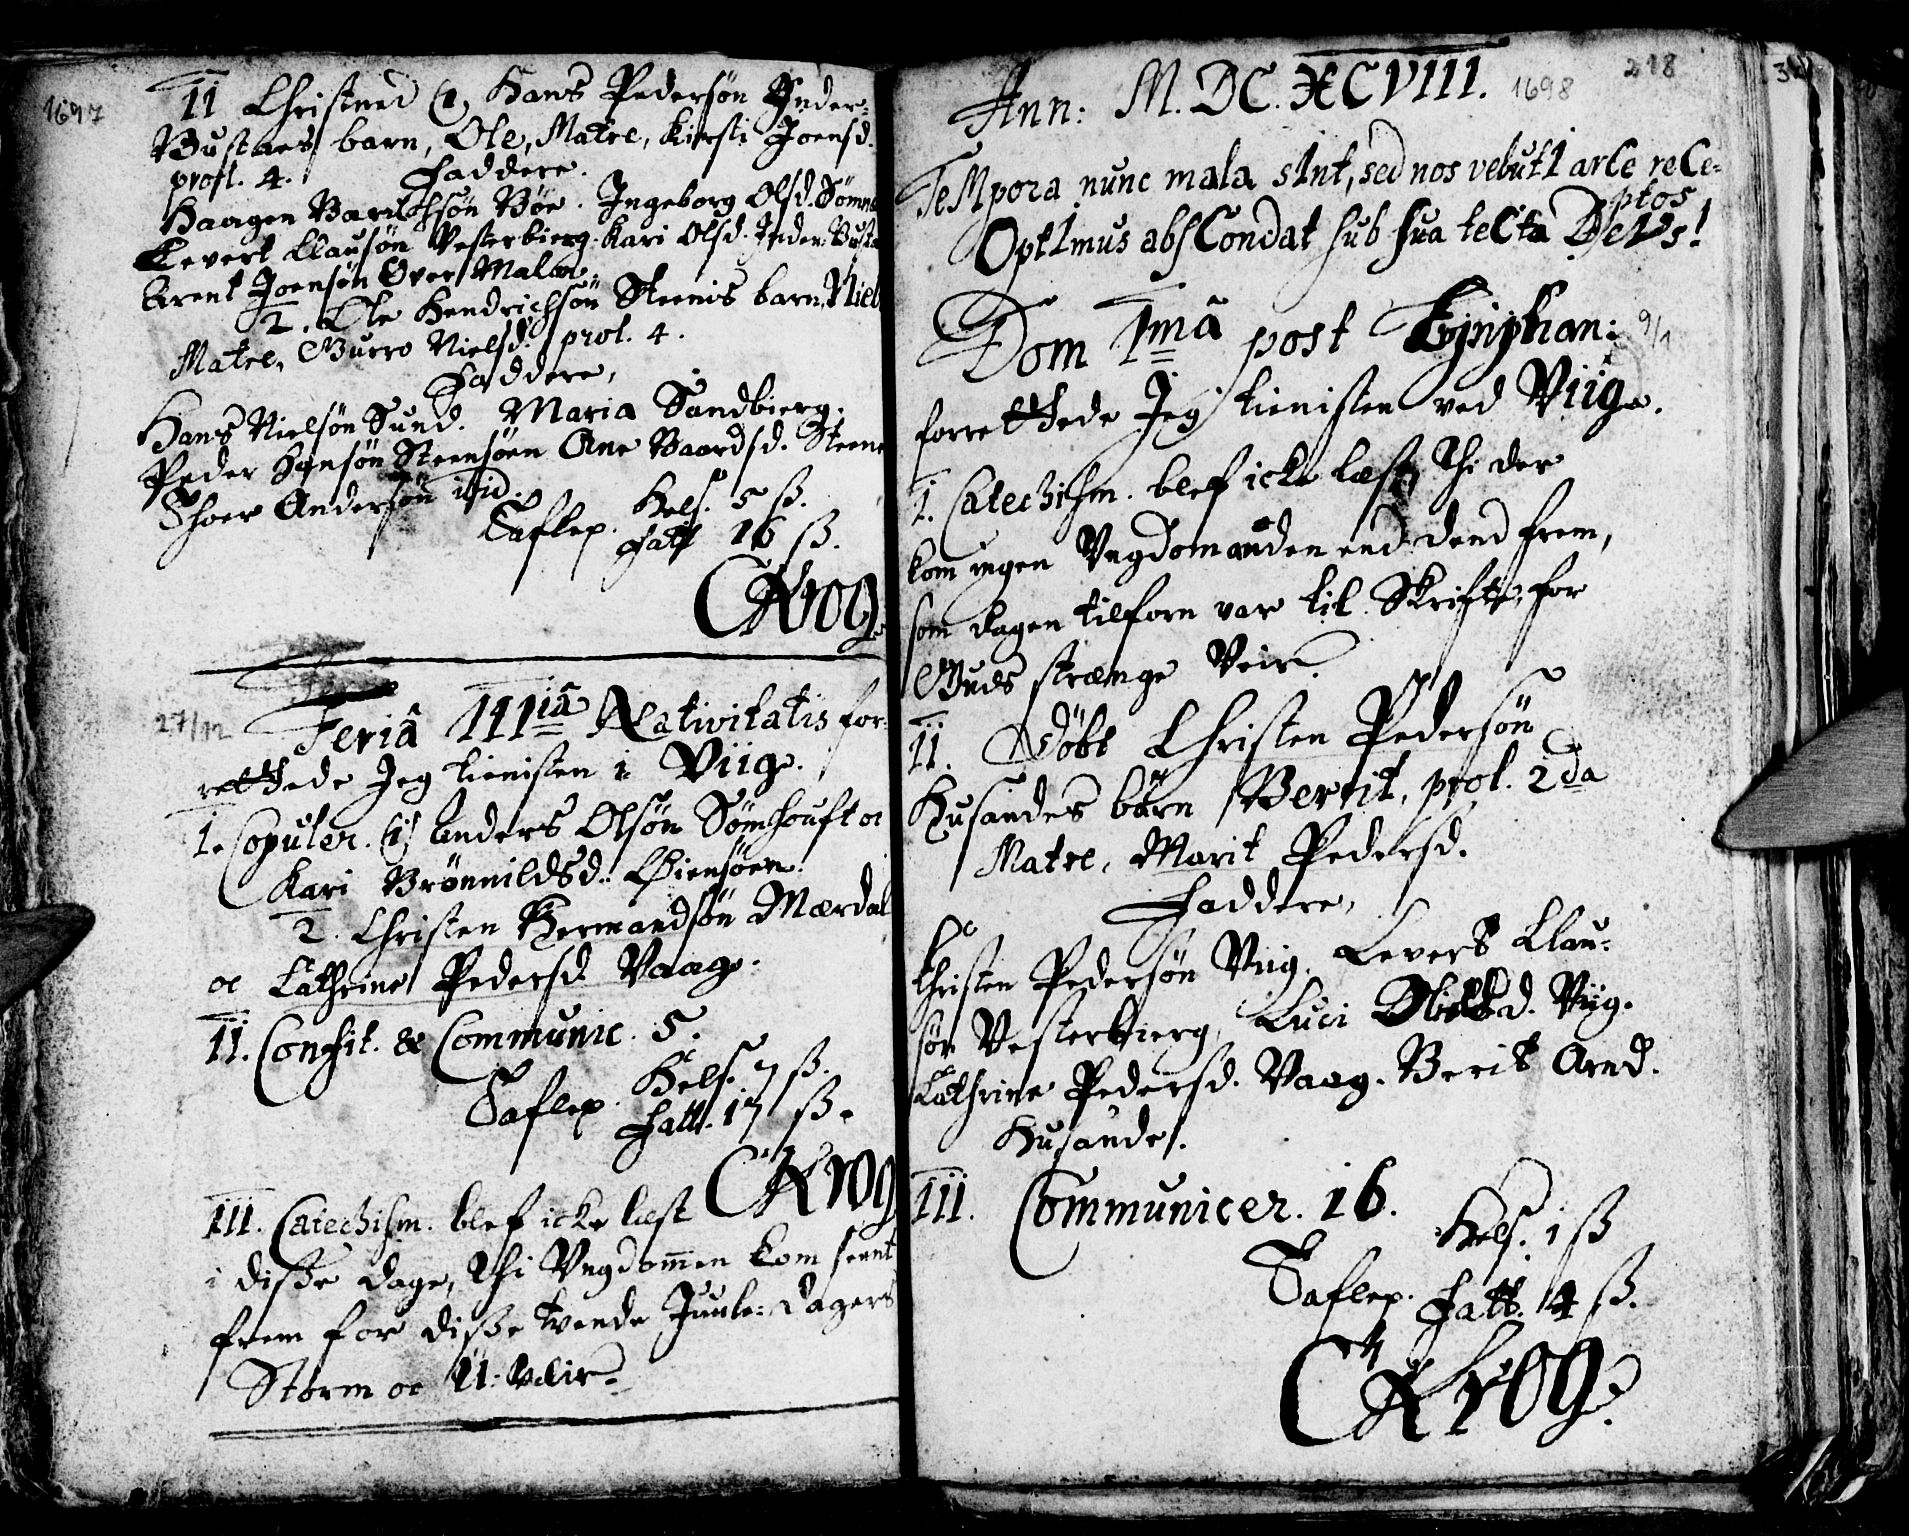 1697
II Christned (1, Hans Pedersön Ynder-
Bustaes barn, Ole, Matre, Kirsti Joensd.
prol. 4. Faddere.
Haagen Bariltsön Böe. Ingeborg Olsd. Sömn
Levert Clausön Vesterbierg. Kari Olsd. Ynder-Busta
Arent Joensön Over Malm.
2. Ole Hendrichsön Steenis barn, Niel
Matre, Gurro Nielsd. prol. 4.
Faddere,
Hans Nielsön Sund. Maria Sandbierg.
Peder Hansön Steensöen Ane Baardsd. Steene
Thoer Andersön ibid.
Taflep. Kels. 5 ß.
Fatt. 16 ß.
CKrog.
27/12
Feriâ IIIiâ Nativitatis for-
rettede Jeg tienisten i Viig.
I. Copuler. (1) Anders Olsön Sömhouft oc
Kari Brönnildsd. Öiensöen.
2. Christen Hermandsön Mærdal
oc Cathrine Pedersd Vaag.
II. Confit. & Communic. 5.
Taflep. Kels. 7 ß.
Fatt. 17 ß.
CKrog
III. Catechism. blef icke læst
i disse dage, thi Vngdommen kom seent
frem for disse tvende Juule-dagers
Storm oc U-veir.
218
Ann: M.DC.XCVIII. 1698
TeMpora nunc mala sInt, sed nos velutI arCe reCe-
ptos
OptImus absCondat sub sua teCta DeVs!
Dom 1mâ post Epiphan: 9/1
forrettede Jeg tienisten ved Viig.
I. Catechism. blef icke læst, thi der
kom ingen Vngdom anden end dend frem,
som dagen tilforn var til Skrifte, for
Guds strænge Veir.
II. Döbt Christen Pedersön
Husandes barn Berrit, prol. 2da
Matre, Marit Pedersd.
Faddere,
Christen Pedersön Viig. Levert Clau-
sön Vesterbierg, Luci Olsd. Viig.
Cathrine Pedersd. Vaag. Berit Arnd.
Husande.
III. Communicer. 16.
Taflep. Kels. 1 ß
Fatt. 4 ß.
CKrog.